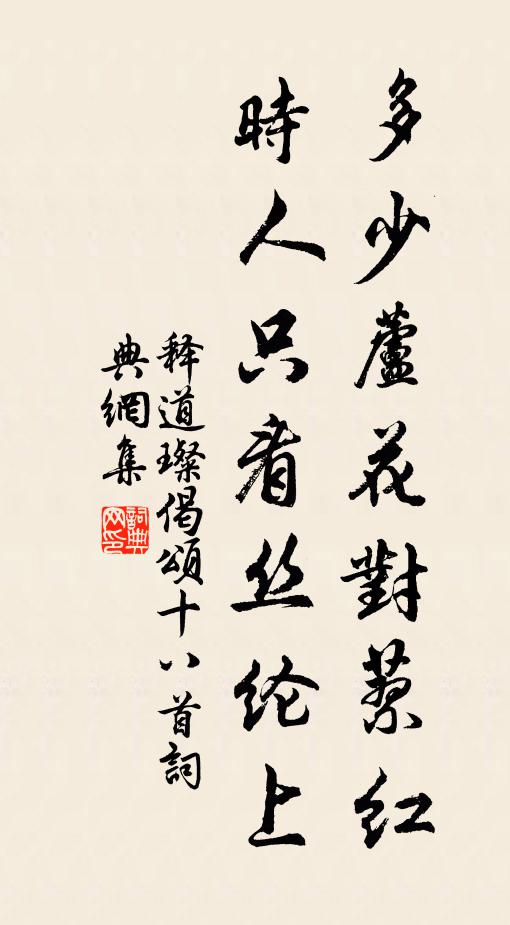 多少蘆花對蓼紅
時人只看丝纶上
释道璨偈頌十八首詞
典網集
詞典网印